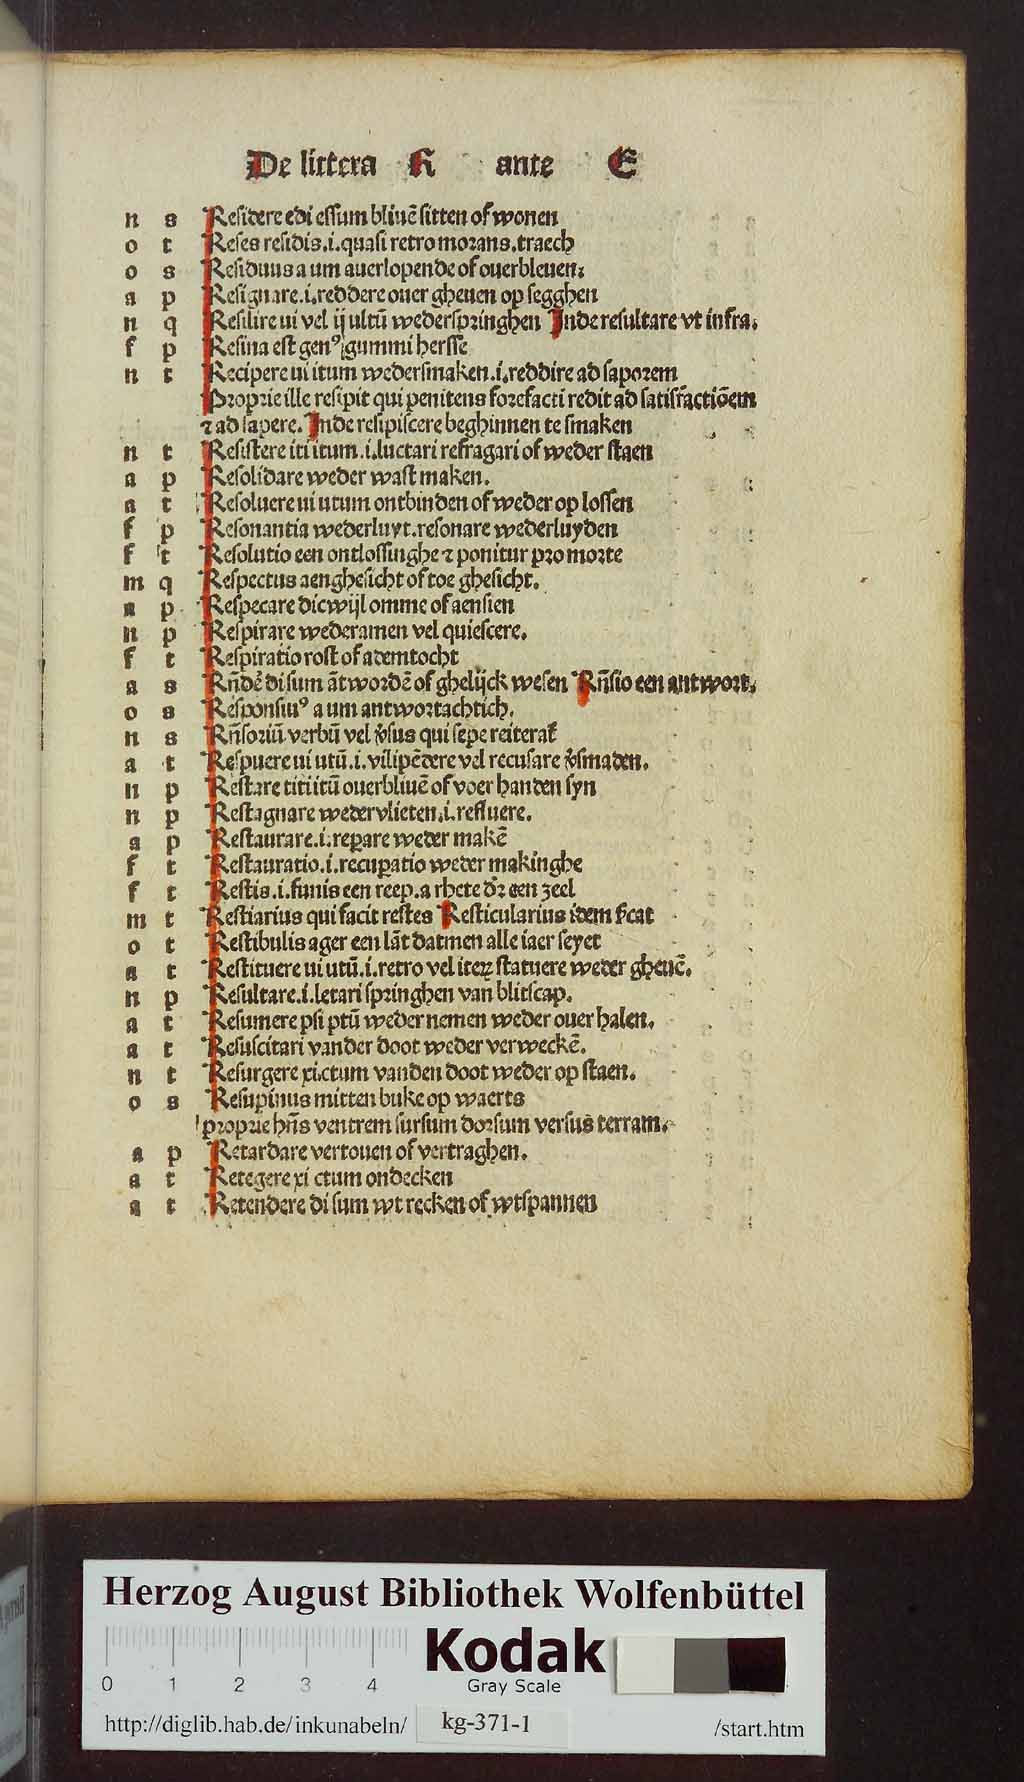 De littera R ante E
n s Residere edi essum bliuē sitten of wonen
o t Reses residis.i.quasi retro morans.traech
o s Residuus a um auerlopende of ouerbleuen:
a p Resignare.i.reddere ouer gheuen op segghen
n q Resilire ui vel ij ultū wederspringhen Inde resultare vt infra.
f p Resina est genꝰ gummi hersse
n t Recipere ui itum wedersmaken.i.reddire ad saporem
Proprie ille resipit qui penitens forefacti redit ad satisfactiōem
⁊ ad sapere. Inde resipiscere beghinnen te smaken
n t Resistere iti itum.i.luctari refragari of weder staen
a p Resolidare weder wast maken.
a t Resoluere ui utum ontbinden of weder op lossen
f p Resonantia wederluyt.resonare wederluyden
f t Resolutio een ontlossinghe ⁊ ponitur pro morte
m q Respectus aenghesicht of toe ghesicht.
a p Respecare dicwijl omme of aensien
n p Respirare wederamen vel quiescere.
f t Respiratio rost of ademtocht
a s Rn̄dē di sum ātwordē of ghelijck wesen Rn̄sio een antwort.
o s Responsiuꝰ a um antwortachtich.
n s Rn̄soriū verbū vel v̓sus qui sepe reiterat᷑
a t Respuere ui utū.i.vilipēdere vel recusare v̓smaden.
n p Restare titi itū ouerbliuē of voer handen syn
n p Restagnare wedervlieten.i.refluere.
a p Restaurare.i.reꝑare weder makē
f t Restauratio.i.recuꝑatio weder makinghe
f t Restis.i.funis een reep.a rhete dr̄ een zeel
m t Restiarius qui facit restes Resticularius idem s̓cat
o t Restibulis ager een lāt datmen alle iaer seyet
a t Restituere ui utū.i.retro vel iteꝝ statuere weder gheuē.
n p Resultare.i.letari springhen van blitscap.
a t Resumere psi ptū weder nemen weder ouer halen.
a t Resuscitari vander doot weder verweckē.
n t Resurgere xi.ctum vanden doot weder op staen.
o s Resupinus mitten buke op waerts
proprie hn̄s ventrem sursum dorsum versus terram.
a p Retardare vertouen of vertraghen.
a t Retegere xi ctum ondecken
a t Retendere di sum wt recken of wtspannen
Herzog August Bibliothek Wolfenbüttel
Kodak
Gray Scale
0 1 2 3 4
http://diglib.hab.de/inkunabeln/ kg-371-1 /start.htm